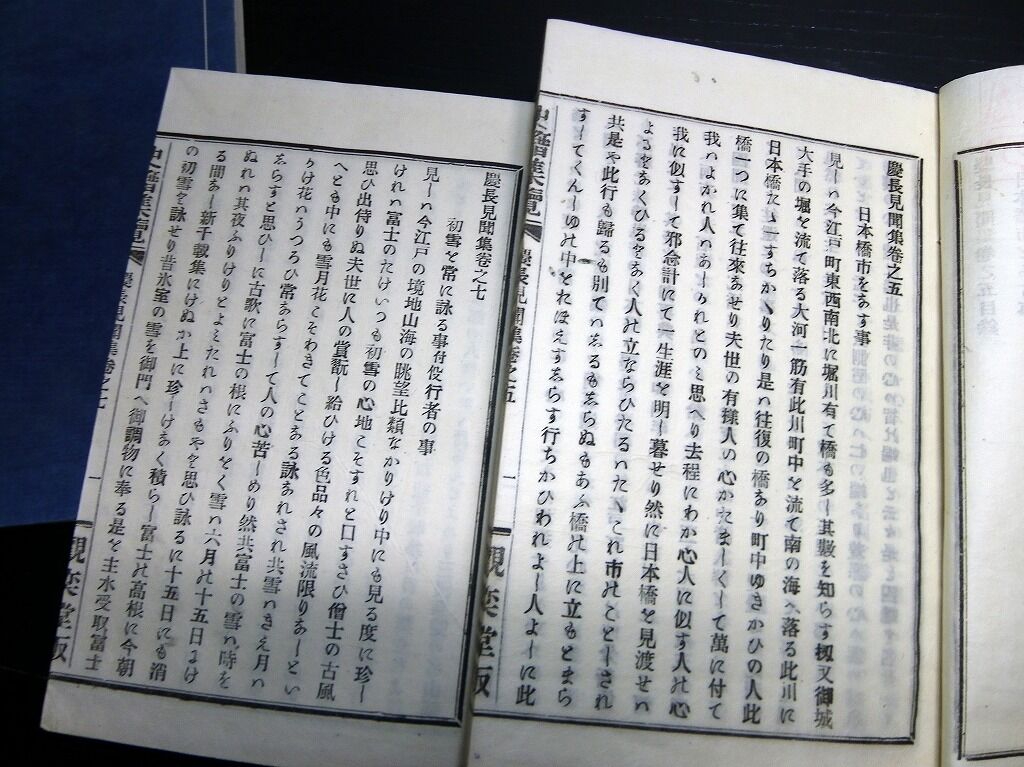 慶長見聞集卷之五
日本橋市をあす事
見しハ今江戸町東西南北に堀川有て橋も多し其數を知らす扨又御城
大手の堀を流て落る大河一筋有此川町中を流て南の海へ落る此川に
日本橋たゝ一すちかゝりたり是ハ往復の橋あり町中ゆきかひの人此
橋一つに集て往來あせり夫世の有樣人の心かたましくして萬に付て
我ハよかれ人ハあしかれとのミ思へり去程にわか心人に似す人の心
我に似すして邪念計にて一生涯を明し暮せり然に日本橋を見渡せハ
よるをあくひるをあく人の立ならひたるハたゝこれ市のことしされ
共是や此行も歸るも別てハしるもしらぬもあふ橋の上に立もとまら
すしてくんしゆの中をれほえすしらす行ちかひわれよし人よしに此
史籍集覽
慶長見聞集卷之五
一
觀奕堂版
慶長見聞集卷之七
初雪を常に詠る事付役行者の事
見しハ今江戸の境地山海の眺望比類なかりけり中にも見る度に珍し
けれハ富士のたけいつも初雪の心地こそすれと口すさひ僧士の古風
思ひ出侍りぬ夫世に人の賞翫し給ひける色品々の風流限りあしとい
へとも中にも雪月花こそわきてことある詠あれされ共雪ハきえ月ハ
かけ花ハうつろひ常あらすして人の心苦しめり然共富士の雪ハ時を
しらすと思ひしに古歌に富士の根にふりをく雪ハ六月の十五日にけ
ぬれハ其夜ふりけりとよミたれハさもやと思ひ詠るに十五日にも消
る間あし新千載集にけぬか上に珍しけあく積らし富士の高根に今朝
の初雪を詠せり昔氷室の雪を御門へ御調物に奉る是を主水受取富士
史籍集覽
慶長見聞集卷之七
一
觀奕堂版